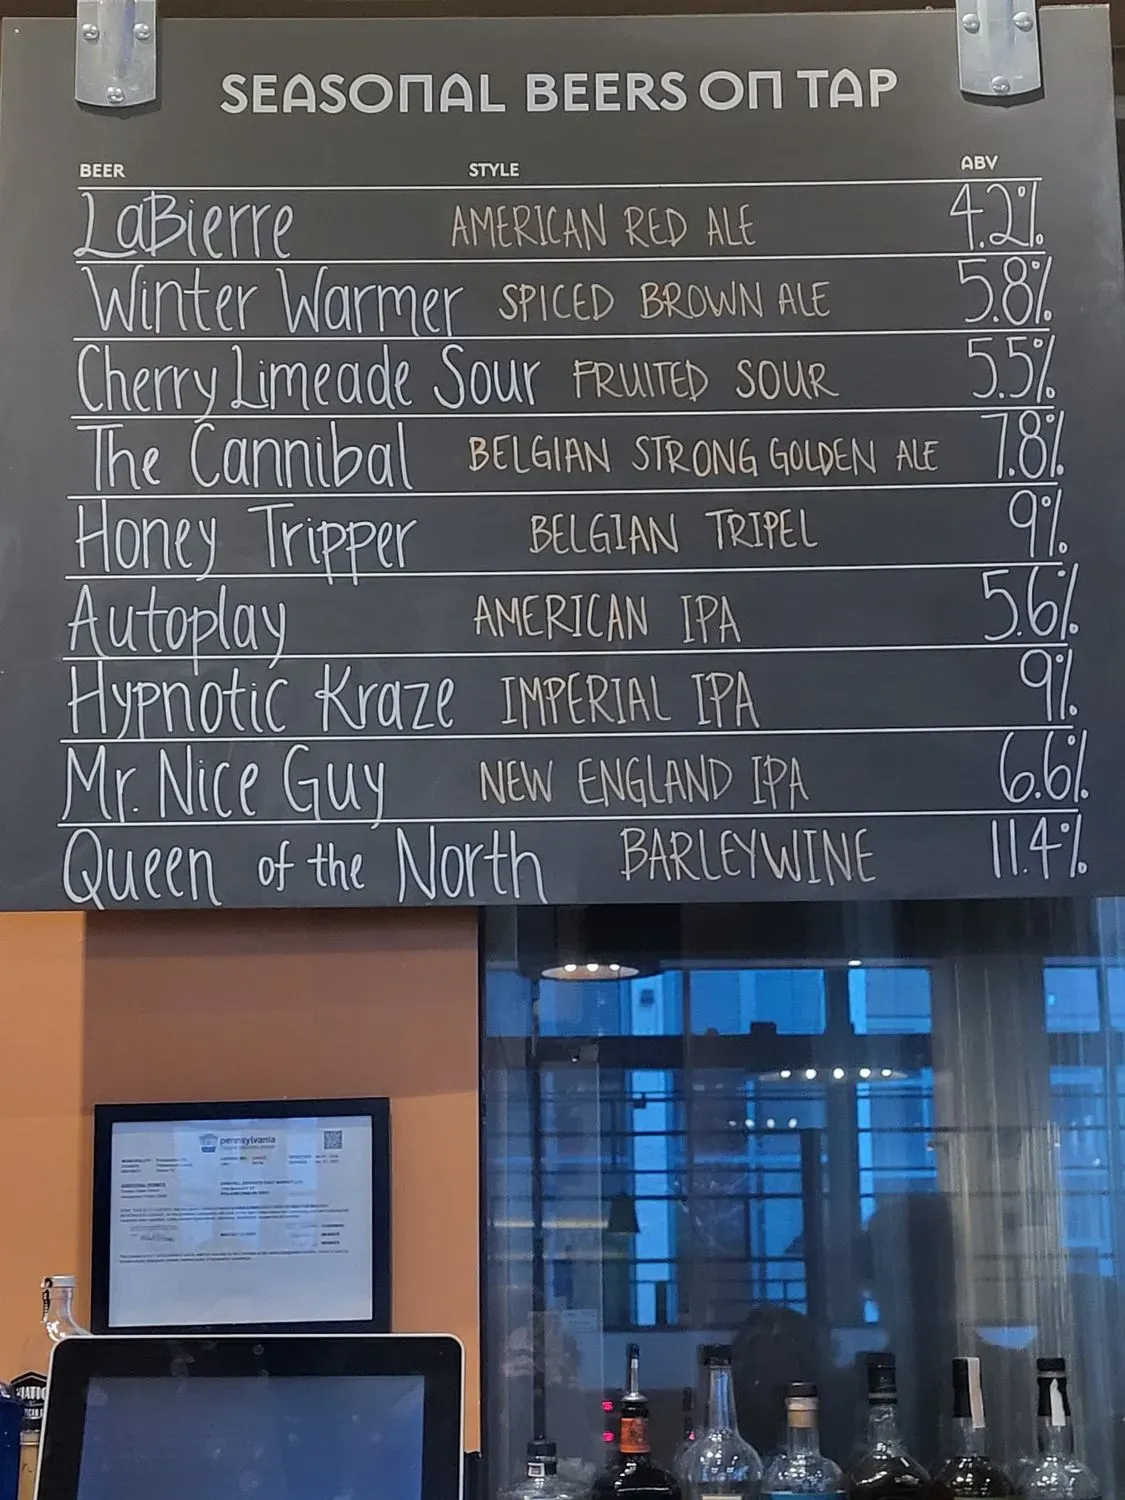 SEASONAL BEERS ON TAP
BEER STYLE ABV
LaBierre AMERICAN RED ALE 4.2%
Winter Warmer SPICED BROWN ALE 5.8%
Cherry Limeade Sour FRUITED SOUR 5.5%
The Cannibal BELGIAN STRONG GOLDEN ALE 7.8%
Honey Tripper BELGIAN TRIPEL 9%
Autoplay AMERICAN IPA 5.6%
Hypnotic Kraze IMPERIAL IPA 9%
Mr. Nice Guy NEW ENGLAND IPA 6.6%
Queen of the North BARLEYWINE 11.4%
pennsylvania